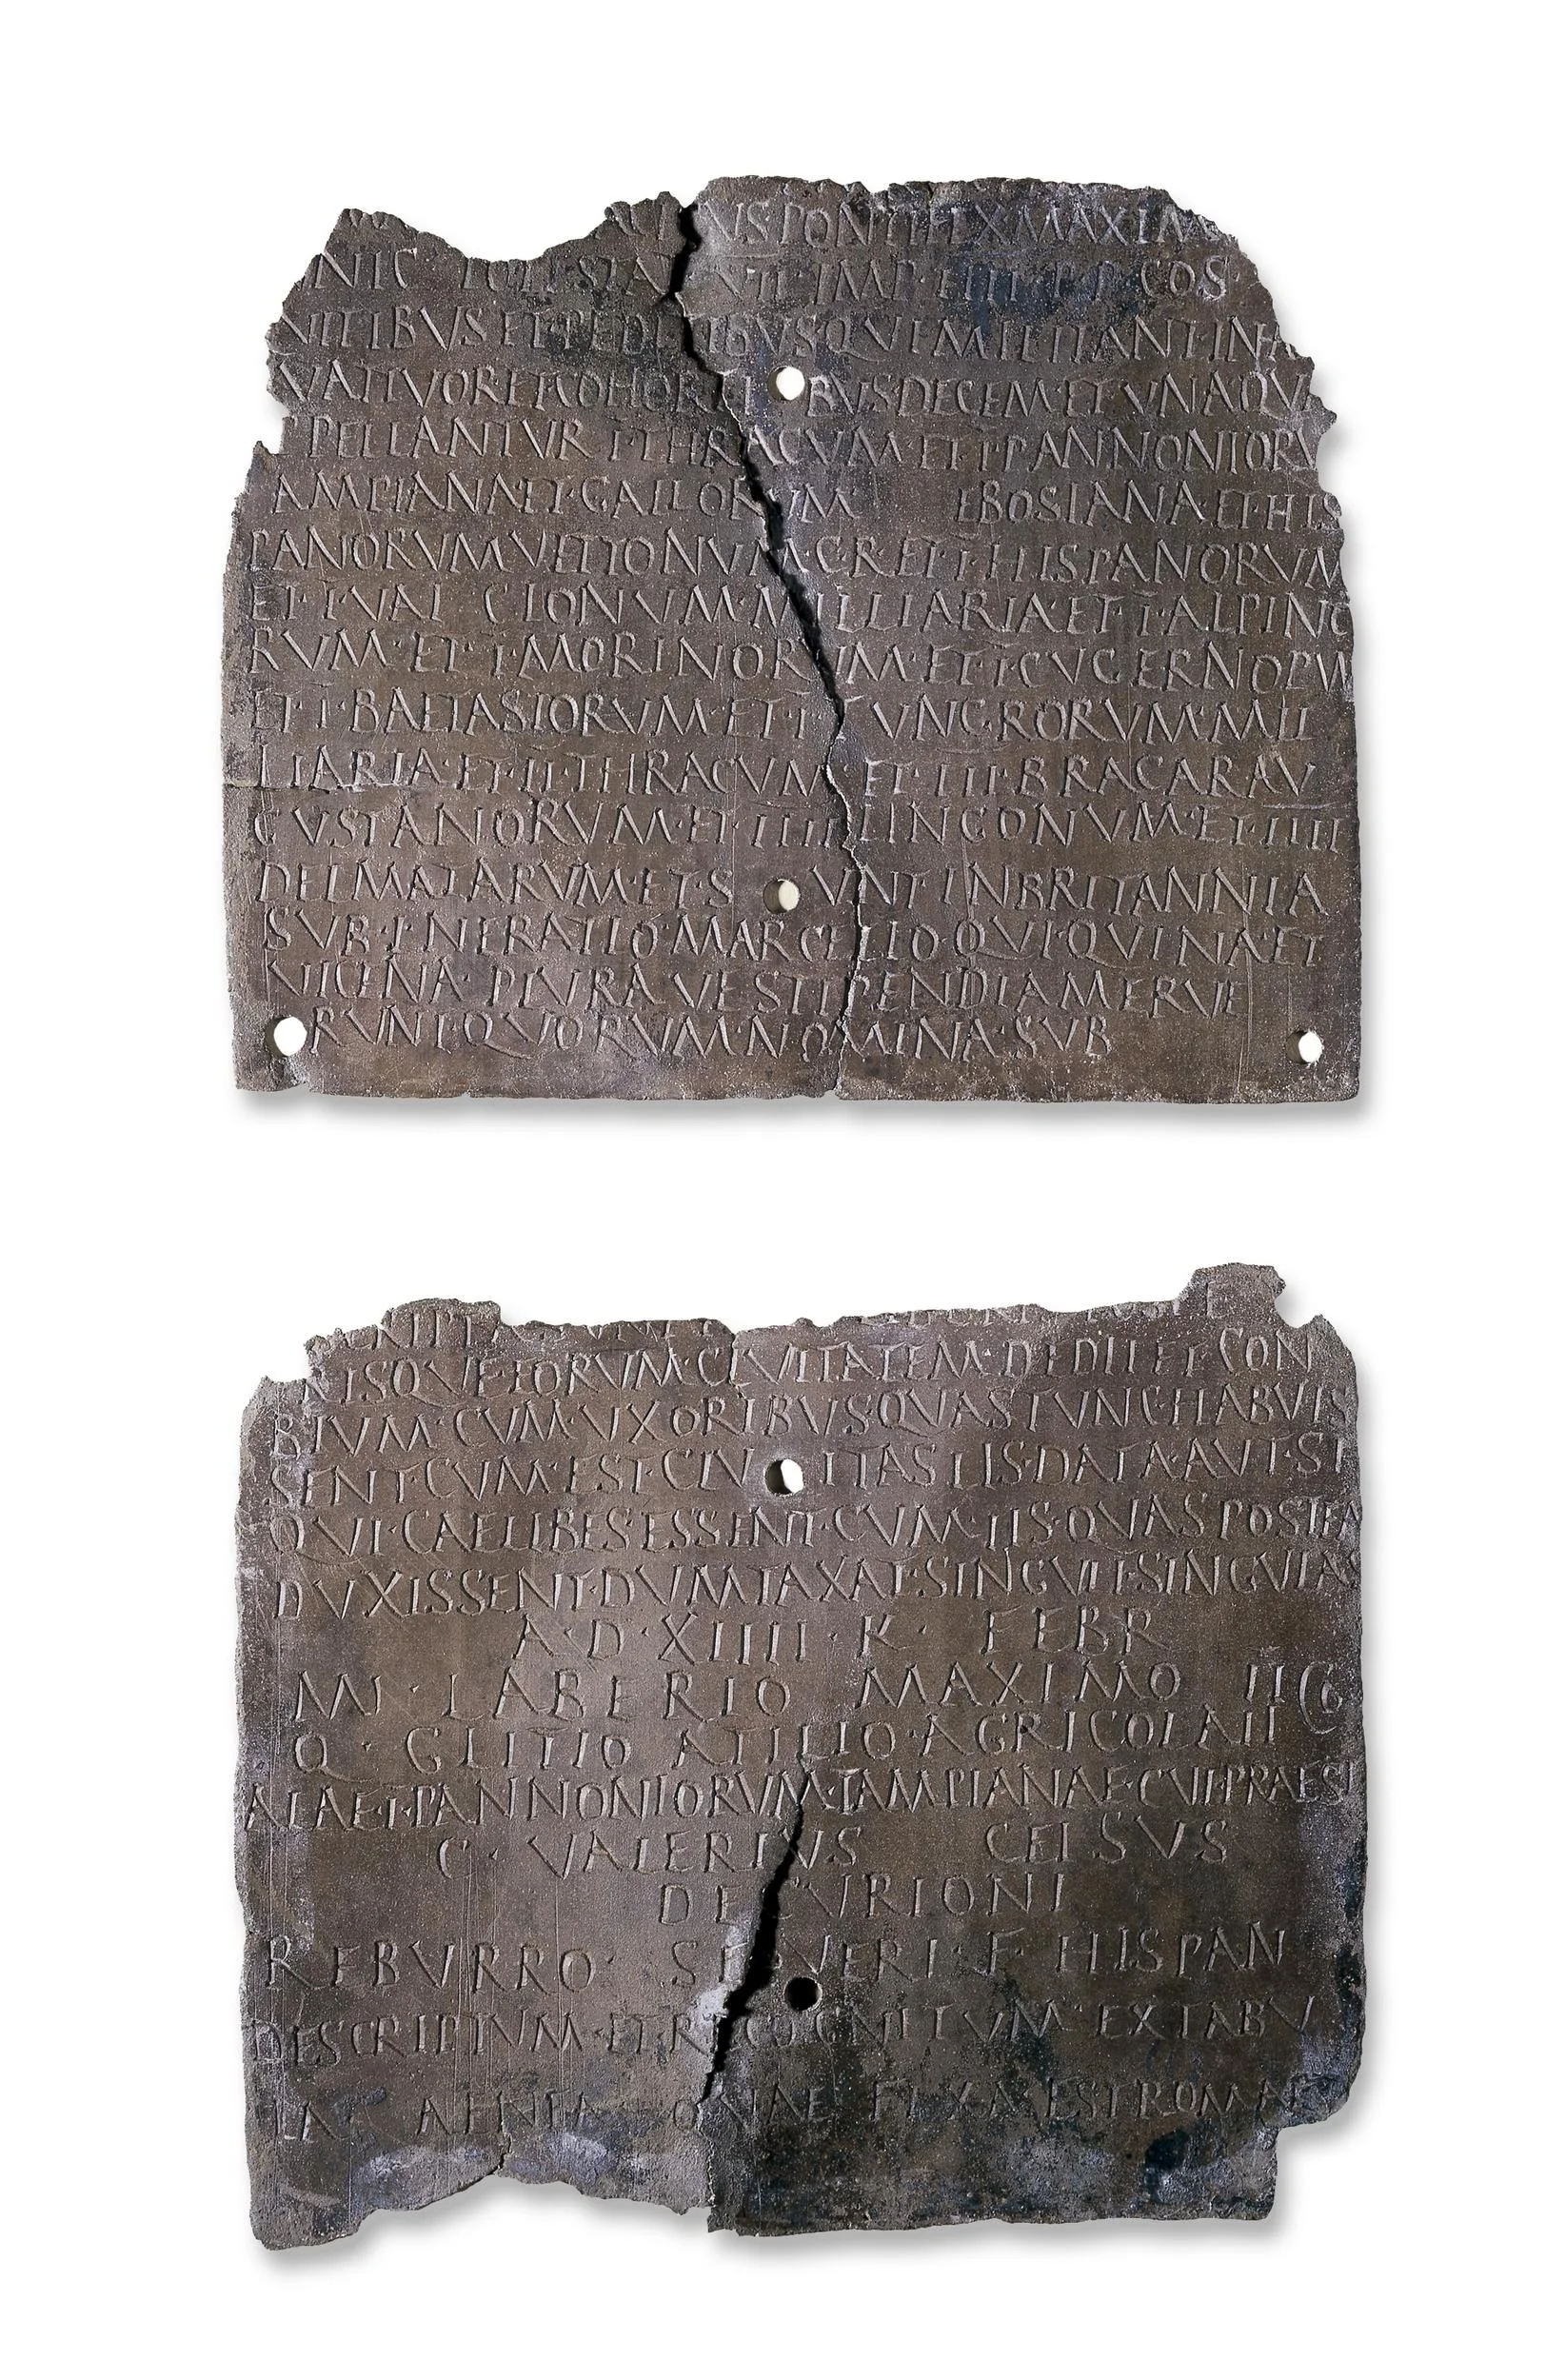 VS·PONTIFEX MAXIM
NIC POTESTAT VII IMP·IIII·P·P·COS
VITIBVS ET·PEDITIBVS QVE MILITANT·IN A
VATTVOR ET COHORTIBVS DECEM·ET VNA QVA
PPELLANTVR I·THRACVM ET·I PANNONIORV
TAMPIANA ET·GALLORVM EBOSIANA ET·HIS
PANORVM VETTONVM·C·R·ET·I·HISPANORVM
ET·I·VAL CIONVM·MILLIARIA·ET·I·ALPINO
RVM·ET·I·MORINORVM·ET·I·CVGERNORVM
ET·I·BAETASIORVM·ET·I·TVNGRORVM·MIL
LIARIA·ET·II·THRACVM ET·III·BRACARAV
GVSTANORVM·ET·IIII·LINGONVM·ET·IIII
DELMATARVM·ET·SVNT·IN BRITANNIA
SVB·T·NERATIO·MARCELLO·QVI·QVINA·ET
VICENA·PLVRAVE STIPENDIA MERVE
RVNT·QVORVM·NOMINA·SVB
SCRIPTA SVNT
RISQVE·EORVM·CIVITATEM·DEDIT ET·CON
BIVM·CVM·VXORIBVS·QVAS TVNC·HABVIS
SENT·CVM·EST·CIVITAS IIS·DATA·AVT·SI
QVI·CAELIBES·ESSENT·CVM·IIS·QVAS POSTEA
DVXISSENT·DVMTAXAT·SINGVLI·SINGVLAS
A·D·XIIII·K· FEBR
M· LABERIO MAXIMO II
Q· GLITIO ATILIO·AGRICOLA II COS
ALAE·I·PANNONIORVM·TAMPIANAE·CVI·PRAEST
C· VALERIVS CELSVS
DECVRIONI
REBVRRO· SEVERI·F· HISPAN
DESCRIPTVM·ET·RECOGNITVM·EX TABV
LA AENEA QVAE FIXA EST ROMAE